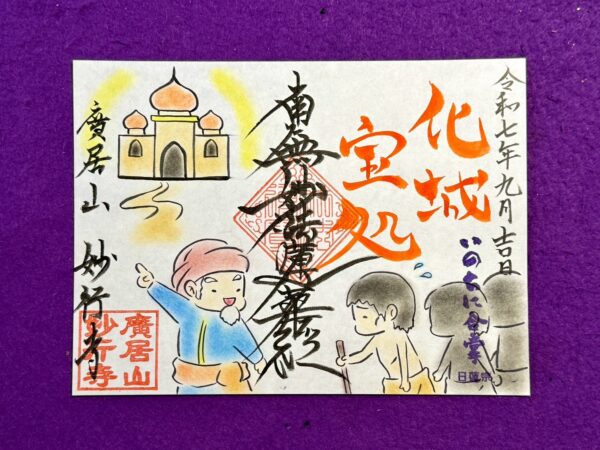 令和七年九月吉日
いのちに合掌
日蓮宗
化城
宝処
南無妙法蓮華経
廣居山 妙行寺
廣居山
妙行寺